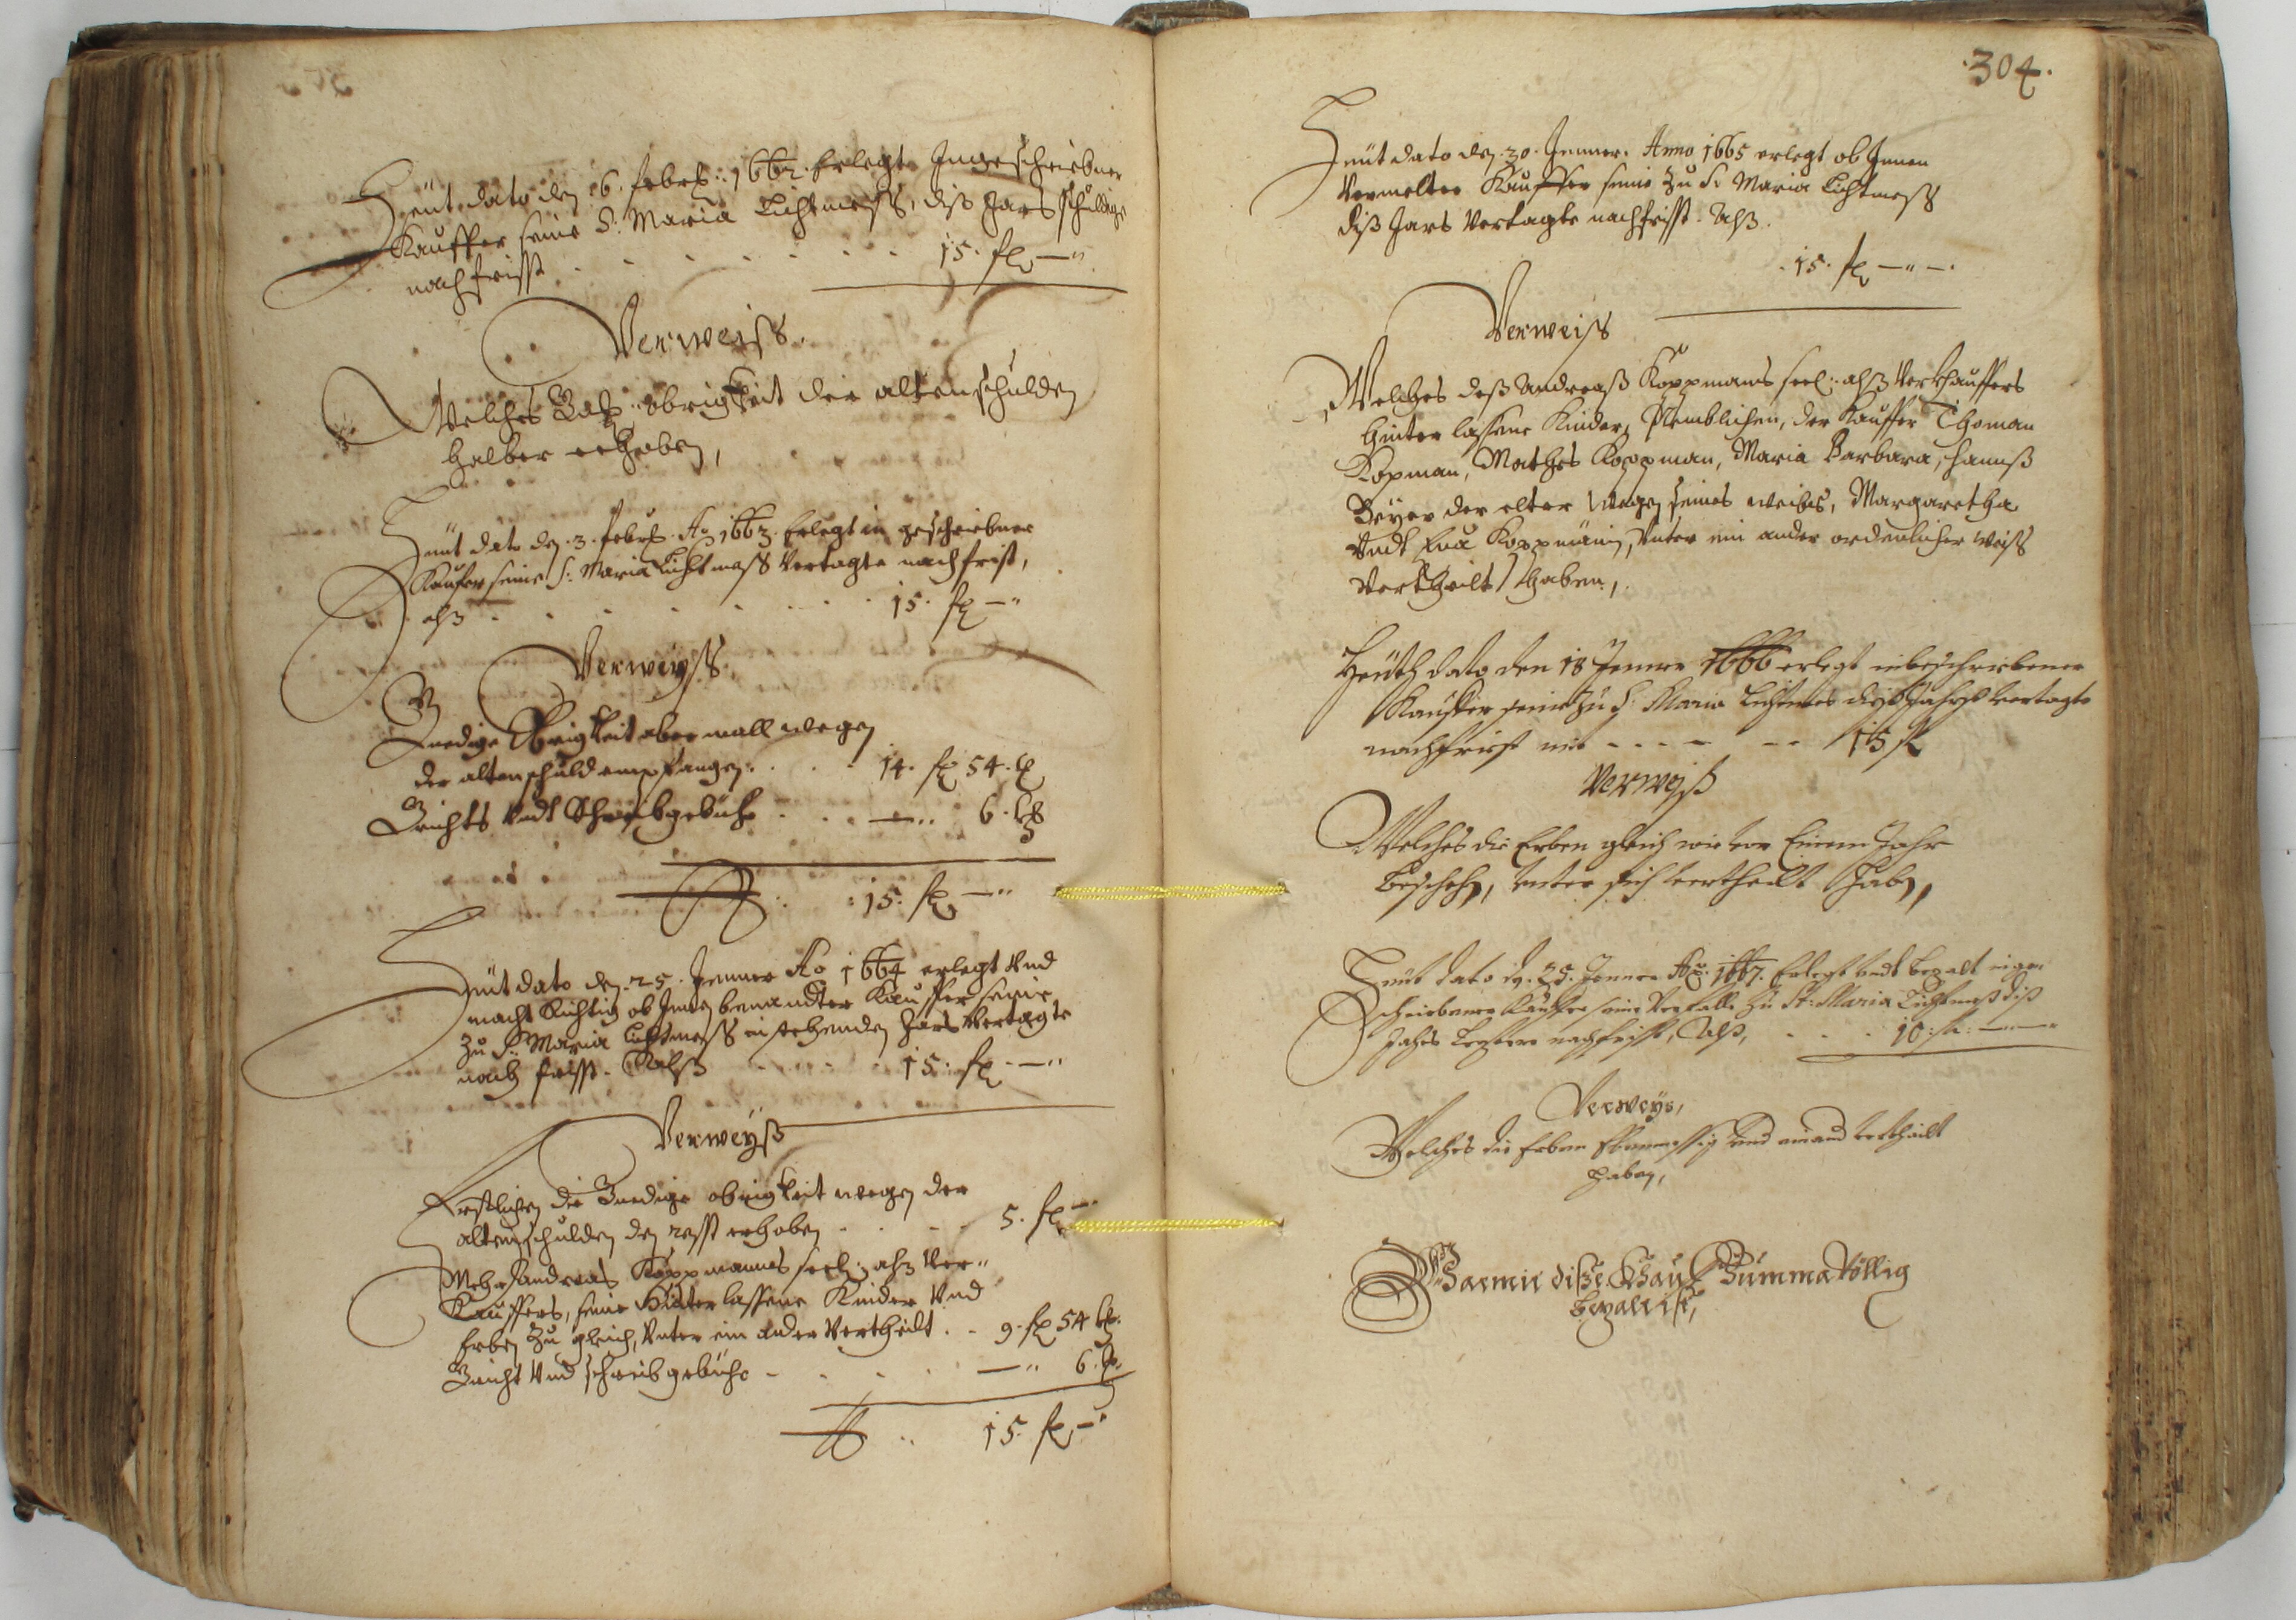 Heut dato den 6. Febr: 1662. Erlegt Ingeschriebner
Kauffer seine S: Maria Lichtmess, diss Jars schuldige
nachfrisst . . . . . . 15. fl —"
Verweiss.
Welches Gn: obrigkeit der alten schulden
halber erhoben,
Heut dato den 3. Febr: Ao 1663. Erlegt in geschriebner
Kaufer seine S: Maria Lichtmess Vertagte nachfrist,
alß . . . . . . 15. fl —"
Verweyss.
Gnedige Obrigkeit abermall wegen
der alten schuld empfangen. . . . 14. fl 54. kr
Gerichts Undt Schreibgebühr . . . —" 6. kr
15. fl —"
Heut dato den 25. Jenner Ao 1664 erlegt Und
macht Richtig ob Innen benandter Kauffer seine
zu S: Maria Lichtmess eingehenden Jars Vertagte
nach frisst. Alß . . . . 15. fl —"
Verweyß
Erstlichen die Gnedige obrigkeit wegen der
alten schulden den resst erhoben . . . 5. fl —"
Mehr Andreas Koppmanns seel: alß Ver"
Kauffers, seine Hinterlassene Kinder Und
Erben Zu gleich, Unter ein ander Vertheilt . . 9. fl 54 kr.
Gericht Und schreibgebühr . . . . —" 6. kr.
15. fl —"
.304.
Heut dato den. 30. Jenner. Anno 1665 erlegt ob Innen
Vermelter Kauffer seine Zu S: Maria Lichtmess
diß Jars Vertagte nachfrisst. Alß.
. 15. fl —"—.
Verweiss
Welches deß Andreaß Koppmans seel: alß Verkhauffers
Hinter lassene Kinder, Nemblichen, der Kauffer Thoman
Kopman, Mathes Koppman, Maria Barbara, Hannß
Beyer der elter wegen seines weibs, Margaretha
Undt Eva Koppmänin, Unter ein ander ordenlicher weiss
Vertheilt haben.,
Heüth dato den 18 Jenner 1666 erlegt inbeschriebener
Kauffer seine zu S: Maria Lichtmes diß Jahrs vertagte
nachfrist mit - - - - -- 15 fl
Verweiß
Welches die Erben gleich wie vor Einem Jahr
beschehen, Unter sich vertheilt haben,
Heut dato d. 25. Jenner Ao: 1667. Erlegt undt bezalt inge-
schriebener Kauffer seine Verfallne zu St: Maria Lichtmess diß
Jahrs Leztere nachfrisst, Alß, . . . 10: fl: —"—"
Verweys,
Welches die Erben undt einand vertheilt
haben,
Darmit diße Khauf Summa Völlig
bezalt ist,